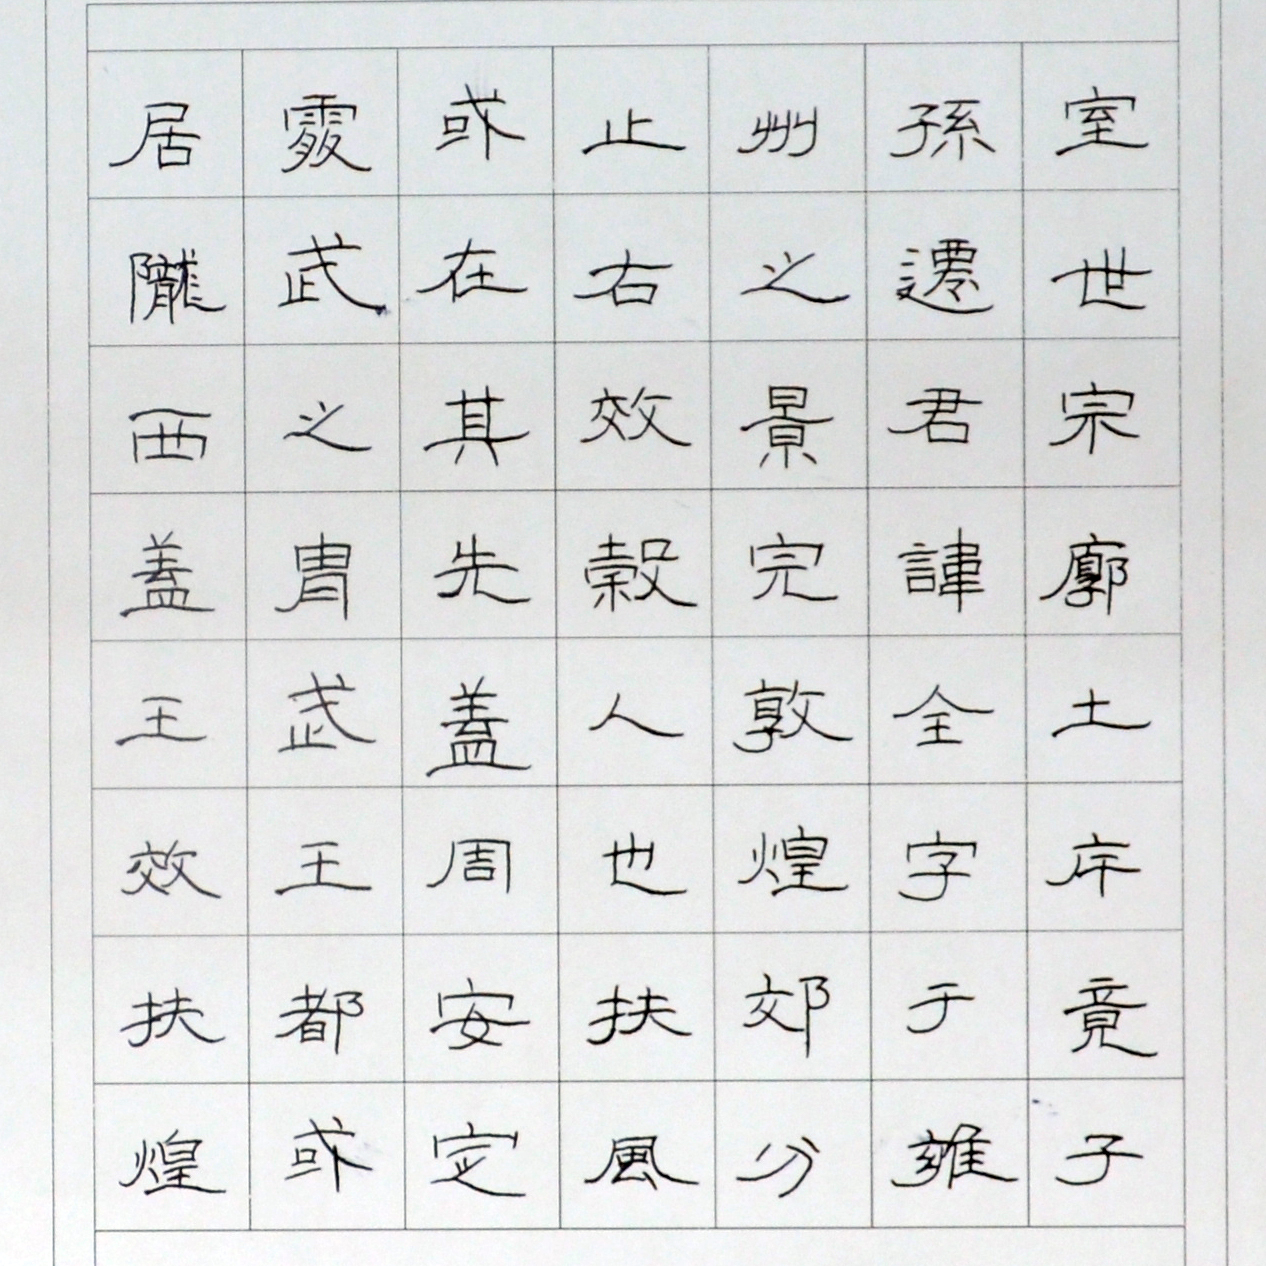 室世宗廓土斥竟子
孫遷君諱全字于雍
州之景完敦煌郊分
止右效穀人也扶風
或在其先蓋周安定
處武之胄武王都或
居隴西蓋王效扶煌